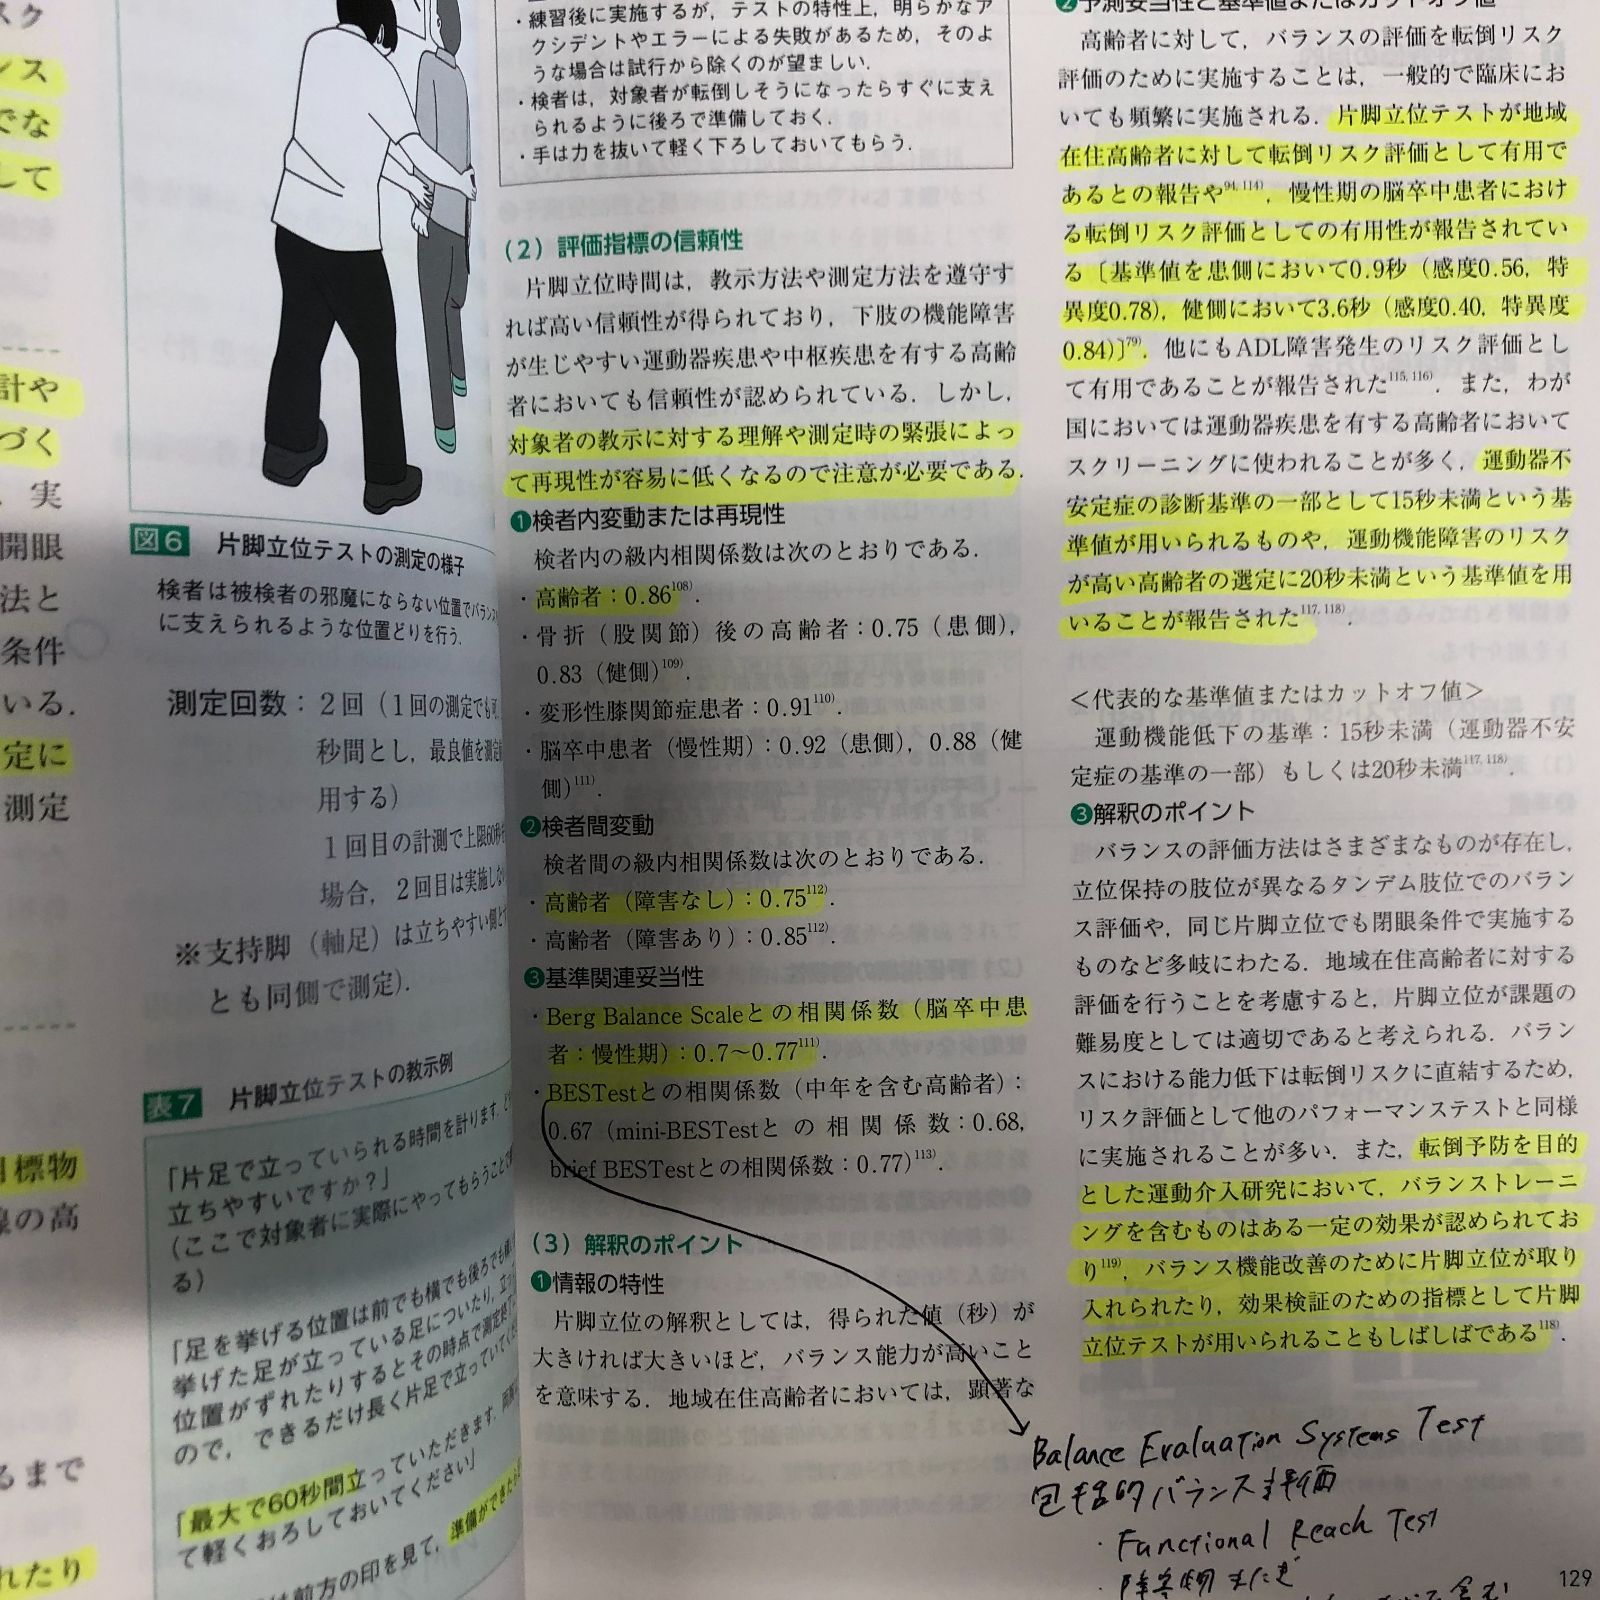 スク
ンス
でな
して
計や
づく
実
開眼
法と
条件
いる.
定に
測定
目標物
線の高
るまで
れたり
図6 片脚立位テストの測定の様子
検者は被検者の邪魔にならない位置でバランス
に支えられるような位置どりを行う.
測定回数：2回（1回の測定でも可
秒間とし，最良値を測定
用する）
1回目の計測で上限60秒
場合，2回目は実施しな
※支持脚（軸足）は立ちやすい側と
とも同側で測定).
表7 片脚立位テストの教示例
「片足で立っていられる時間を計ります.
立ちやすいですか？」
（ここで対象者に実際にやってもらうことで
る）
「足を挙げる位置は前でも横でも後ろでも
挙げた足が立っている足についたり，立っ
位置がずれたりするとその時点で測定終了
ので，できるだけ長く片足で立っていてくだ
「最大で60秒間立っていただきます.
て軽くおろしておいてください」
は前方の印を見て，準備ができたら
・練習後に実施するが，テストの特性上，明らかなア
クシデントやエラーによる失敗があるため，そのよ
うな場合は試行から除くのが望ましい.
・検者は，対象者が転倒しそうになったらすぐに支え
られるように後ろで準備しておく.
・手は力を抜いて軽く下ろしておいてもらう.
（2）評価指標の信頼性
片脚立位時間は，教示方法や測定方法を遵守す
れば高い信頼性が得られており，下肢の機能障害
が生じやすい運動器疾患や中枢疾患を有する高齢
者においても信頼性が認められている．しかし，
対象者の教示に対する理解や測定時の緊張によっ
て再現性が容易に低くなるので注意が必要である.
❶検者内変動または再現性
検者内の級内相関係数は次のとおりである.
・高齢者：0.86108).
・骨折（股関節）後の高齢者：0.75（患側），
0.83（健側)109).
・変形性膝関節症患者：0.91110).
・脳卒中患者（慢性期）：0.92（患側），0.88（健
側)111).
❷検者間変動
検者間の級内相関係数は次のとおりである.
・高齢者（障害なし）：0.75112).
・高齢者（障害あり）：0.85112).
❸基準関連妥当性
・Berg Balance Scaleとの相関係数（脳卒中患
者：慢性期）：0.7〜0.77111).
・BESTestとの相関係数（中年を含む高齢者）：
0.67（mini-BESTestとの相関係数：0.68,
brief BESTestとの相関係数：0.77)113).
（3）解釈のポイント
❶情報の特性
片脚立位の解釈としては，得られた値（秒）が
大きければ大きいほど，バランス能力が高いこと
を意味する．地域在住高齢者においては，顕著な
❷予測妥当性と基準値またはカットオフ値
高齢者に対して，バランスの評価を転倒リスク
評価のために実施することは，一般的で臨床にお
いても頻繁に実施される．片脚立位テストが地域
在住高齢者に対して転倒リスク評価として有用で
あるとの報告や94, 114)，慢性期の脳卒中患者におけ
る転倒リスク評価としての有用性が報告されてい
る〔基準値を患側において0.9秒（感度0.56，特
異度0.78)，健側において3.6秒（感度0.40，特異度
0.84)〕79)．他にもADL障害発生のリスク評価とし
て有用であることが報告された115, 116)．また，わが
国においては運動器疾患を有する高齢者において
スクリーニングに使われることが多く，運動器不
安定症の診断基準の一部として15秒未満という基
準値が用いられるものや，運動機能障害のリスク
が高い高齢者の選定に20秒未満という基準値を用
いることが報告された117, 118).
＜代表的な基準値またはカットオフ値＞
運動機能低下の基準：15秒未満（運動器不安
定症の基準の一部）もしくは20秒未満117, 118).
❸解釈のポイント
バランスの評価方法はさまざまなものが存在し，
立位保持の肢位が異なるタンデム肢位でのバラン
ス評価や，同じ片脚立位でも閉眼条件で実施する
ものなど多岐にわたる．地域在住高齢者に対する
評価を行うことを考慮すると，片脚立位が課題の
難易度としては適切であると考えられる．バラン
スにおける能力低下は転倒リスクに直結するため，
リスク評価として他のパフォーマンステストと同様
に実施されることが多い．また，転倒予防を目的
とした運動介入研究において，バランストレーニ
ングを含むものはある一定の効果が認められてお
り119)，バランス機能改善のために片脚立位が取り
入れられたり，効果検証のための指標として片脚
立位テストが用いられることもしばしばである118).
Balance Evaluation Systems Test
包括的バランス評価
・Functional Reach Test
・障害物またぎ
含む
129